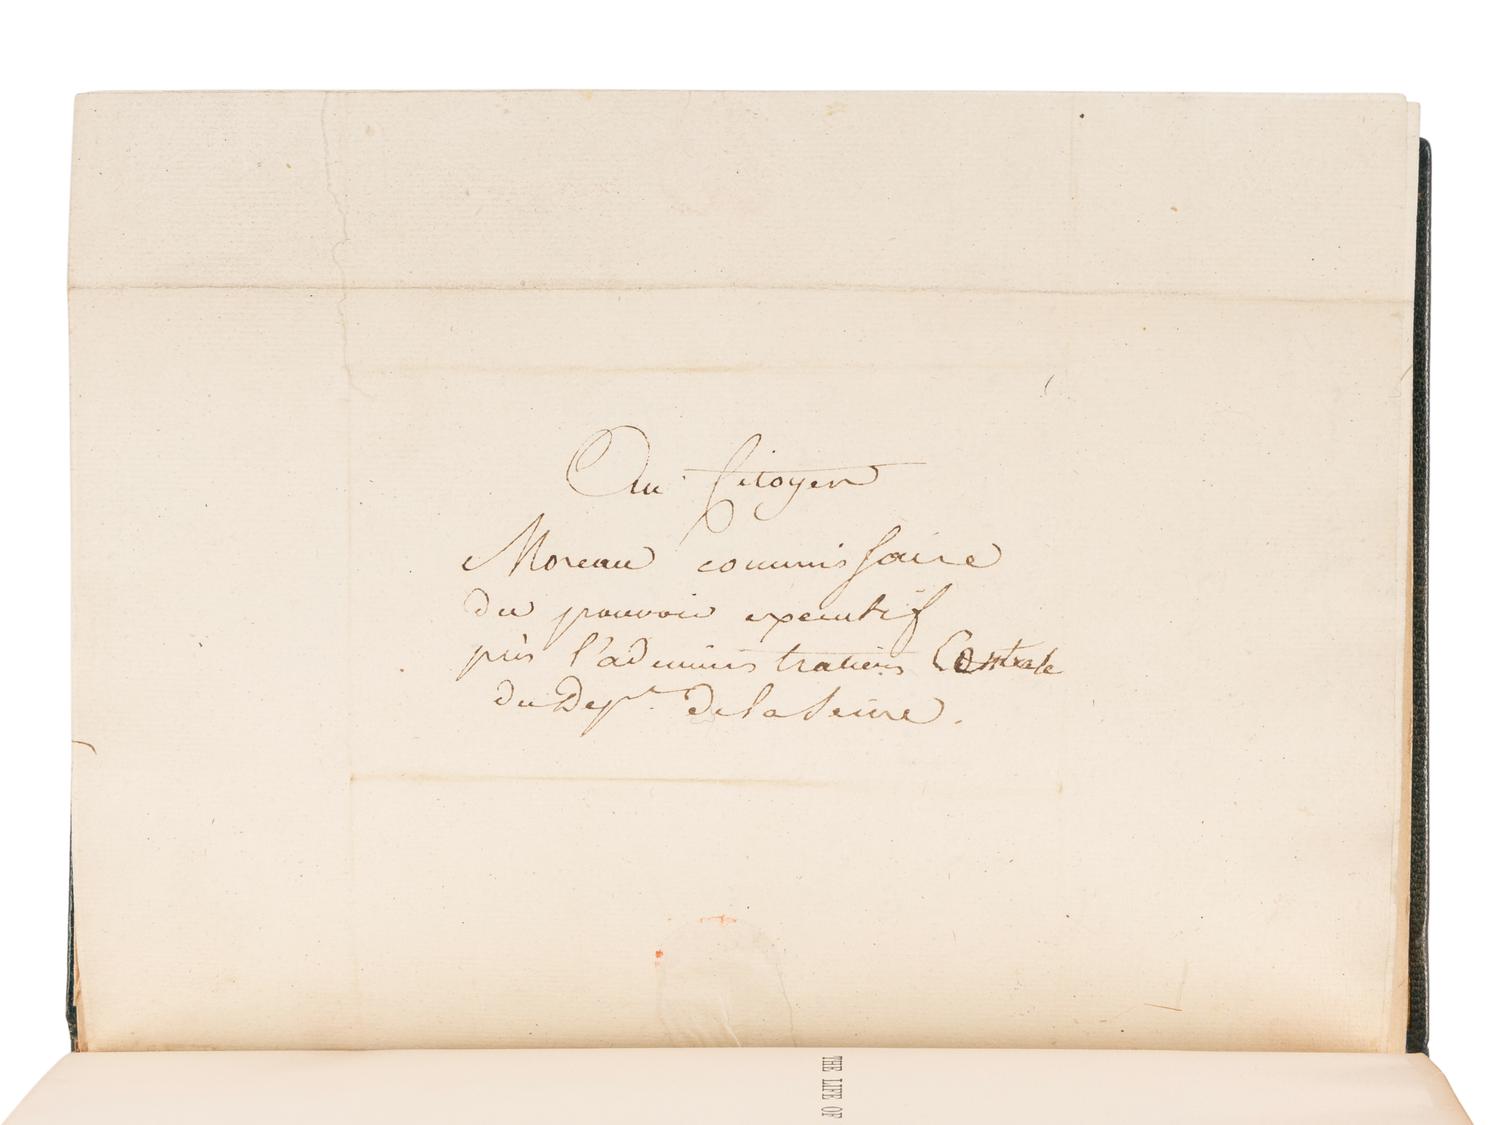 Au Citoyen
Moreau commissaire
du pouvoir executif
près l'administration Centrale
du Dept. de la Seine.
THE LIFE OF